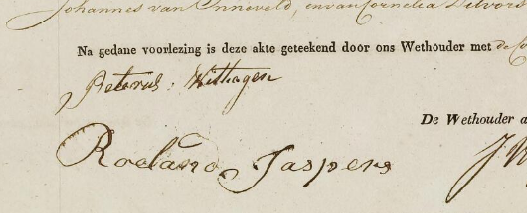 Johannes van Inneveld, en van Cornelia
Na gedane voorlezing is deze akte geteekend door ons Wethouder met de
Peterus Withagen
De Wethouder
Roeland Jaspers